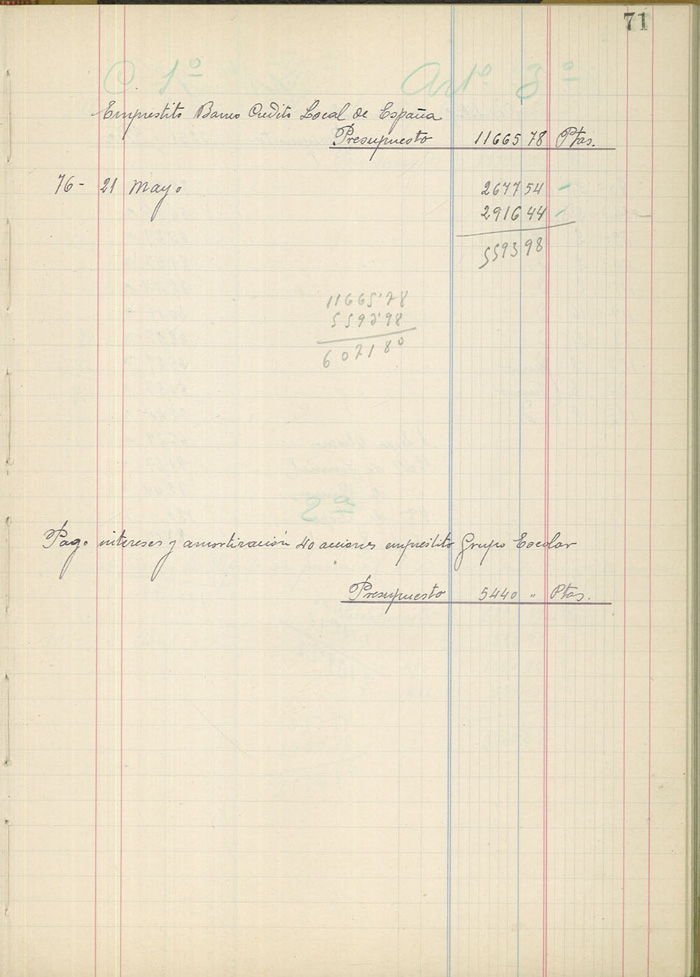 71
C. 1º Artº 3º
Emprestito Banco Credito Local de España
Presupuesto 11665 78 Ptas.
76- 21 Mayo 2677 54
2916 44
5593 98
11665'78
5593'98
6071 80
2ª
Pago intereses y amortización 40 acciones empréstito Grupo Escolar
Presupuesto 5440 " Ptas.